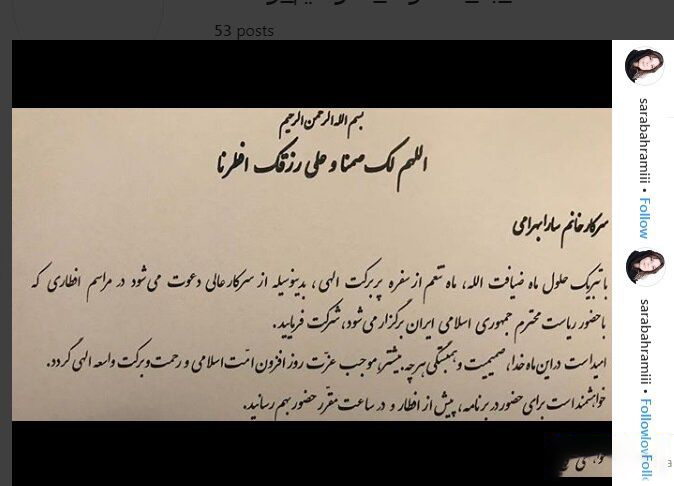 53 posts
بسم الله الرحمن الرحیم
اللهم لک صمنا و علی رزقک افطرنا
سرکار خانم سارا بهرامی
با تبریک حلول ماه ضیافت الله، ماه تنعم از سفره پربرکت الهی، بدینوسیله از سرکارعالی دعوت می‌شود در مراسم افطاری که
با حضور ریاست محترم جمهوری اسلامی ایران برگزار می‌شود، شرکت فرمایید.
امید است در این ماه خدا، صمیمیت و همبستگی هرچه بیشتر، موجب عزّت روز افزون امّت اسلامی و رحمت و برکت واسعه الهی گردد.
خواهشمند است برای حضور در برنامه، پیش از افطار و در ساعت مقرّر حضور بهم رسانید.
sarabahramiii • Follow
sarabahramiii • Follow